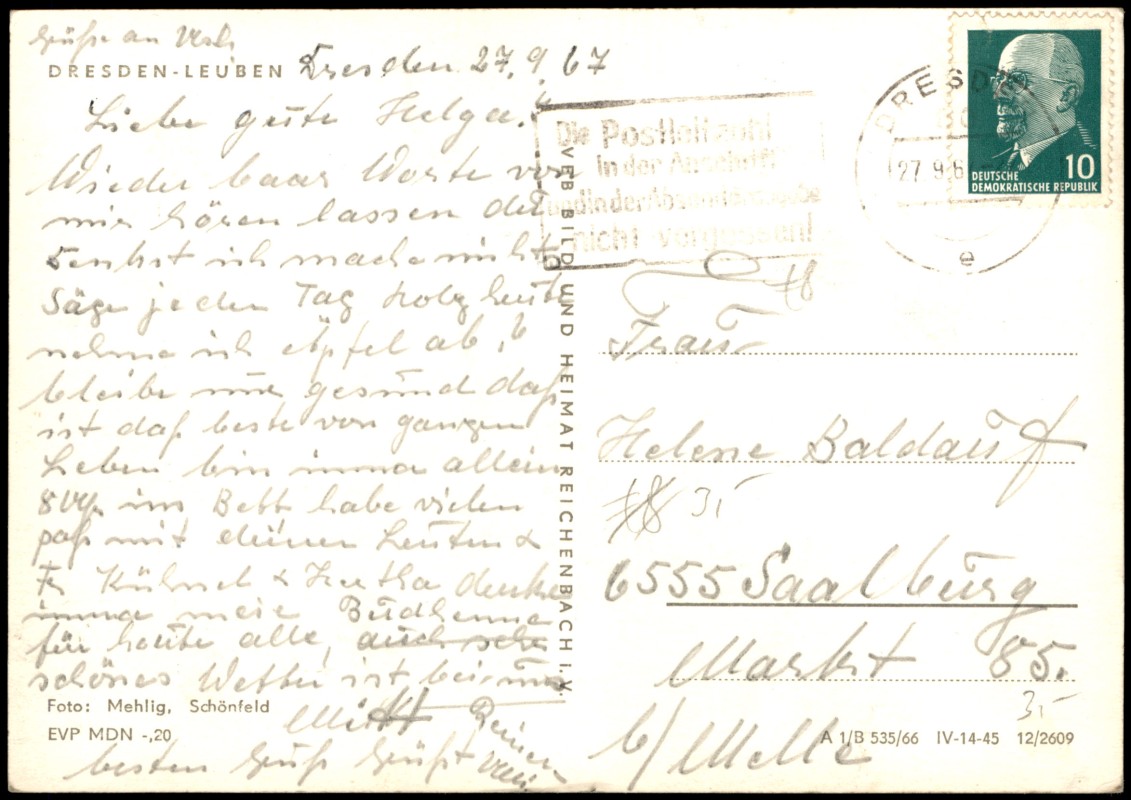 Grüße an Usch
DRESDEN-LEUBEN Dresden 27.9.67
Liebe gute Helga!
Wieder baar Worte von
mir hören lassen de
Denkst ich mache nicht
Säge jeden Tag Holz heute
nehme ich Äpfel ab,
bleibe nur gesund daß
ist daß beste von ganzen
Leben bin imma allein
im Bett habe vielen
paß mit deinen Leuten &
Fr. Kühnel & Hertha denke
imma meie
für heute alle, auch sehr
schönes Wetter ist bei uns
Foto: Mehlig, Schönfeld
EVP MDN -,20
besten Gruß Grüßt
VEB BILD UND HEIMAT REICHENBACH i. V.
Die Postleitzahl
in der Anschrift
und in der Absenderangabe
nicht vergessen!
DRESDEN
27.9.67
e
10
DEUTSCHE
DEMOKRATISCHE REPUBLIK
Frau
Helene Baldauf
3,-
6555 Saalburg
Markt 85.
3,-
b/ Melle
A 1/B 535/66 IV-14-45 12/2609